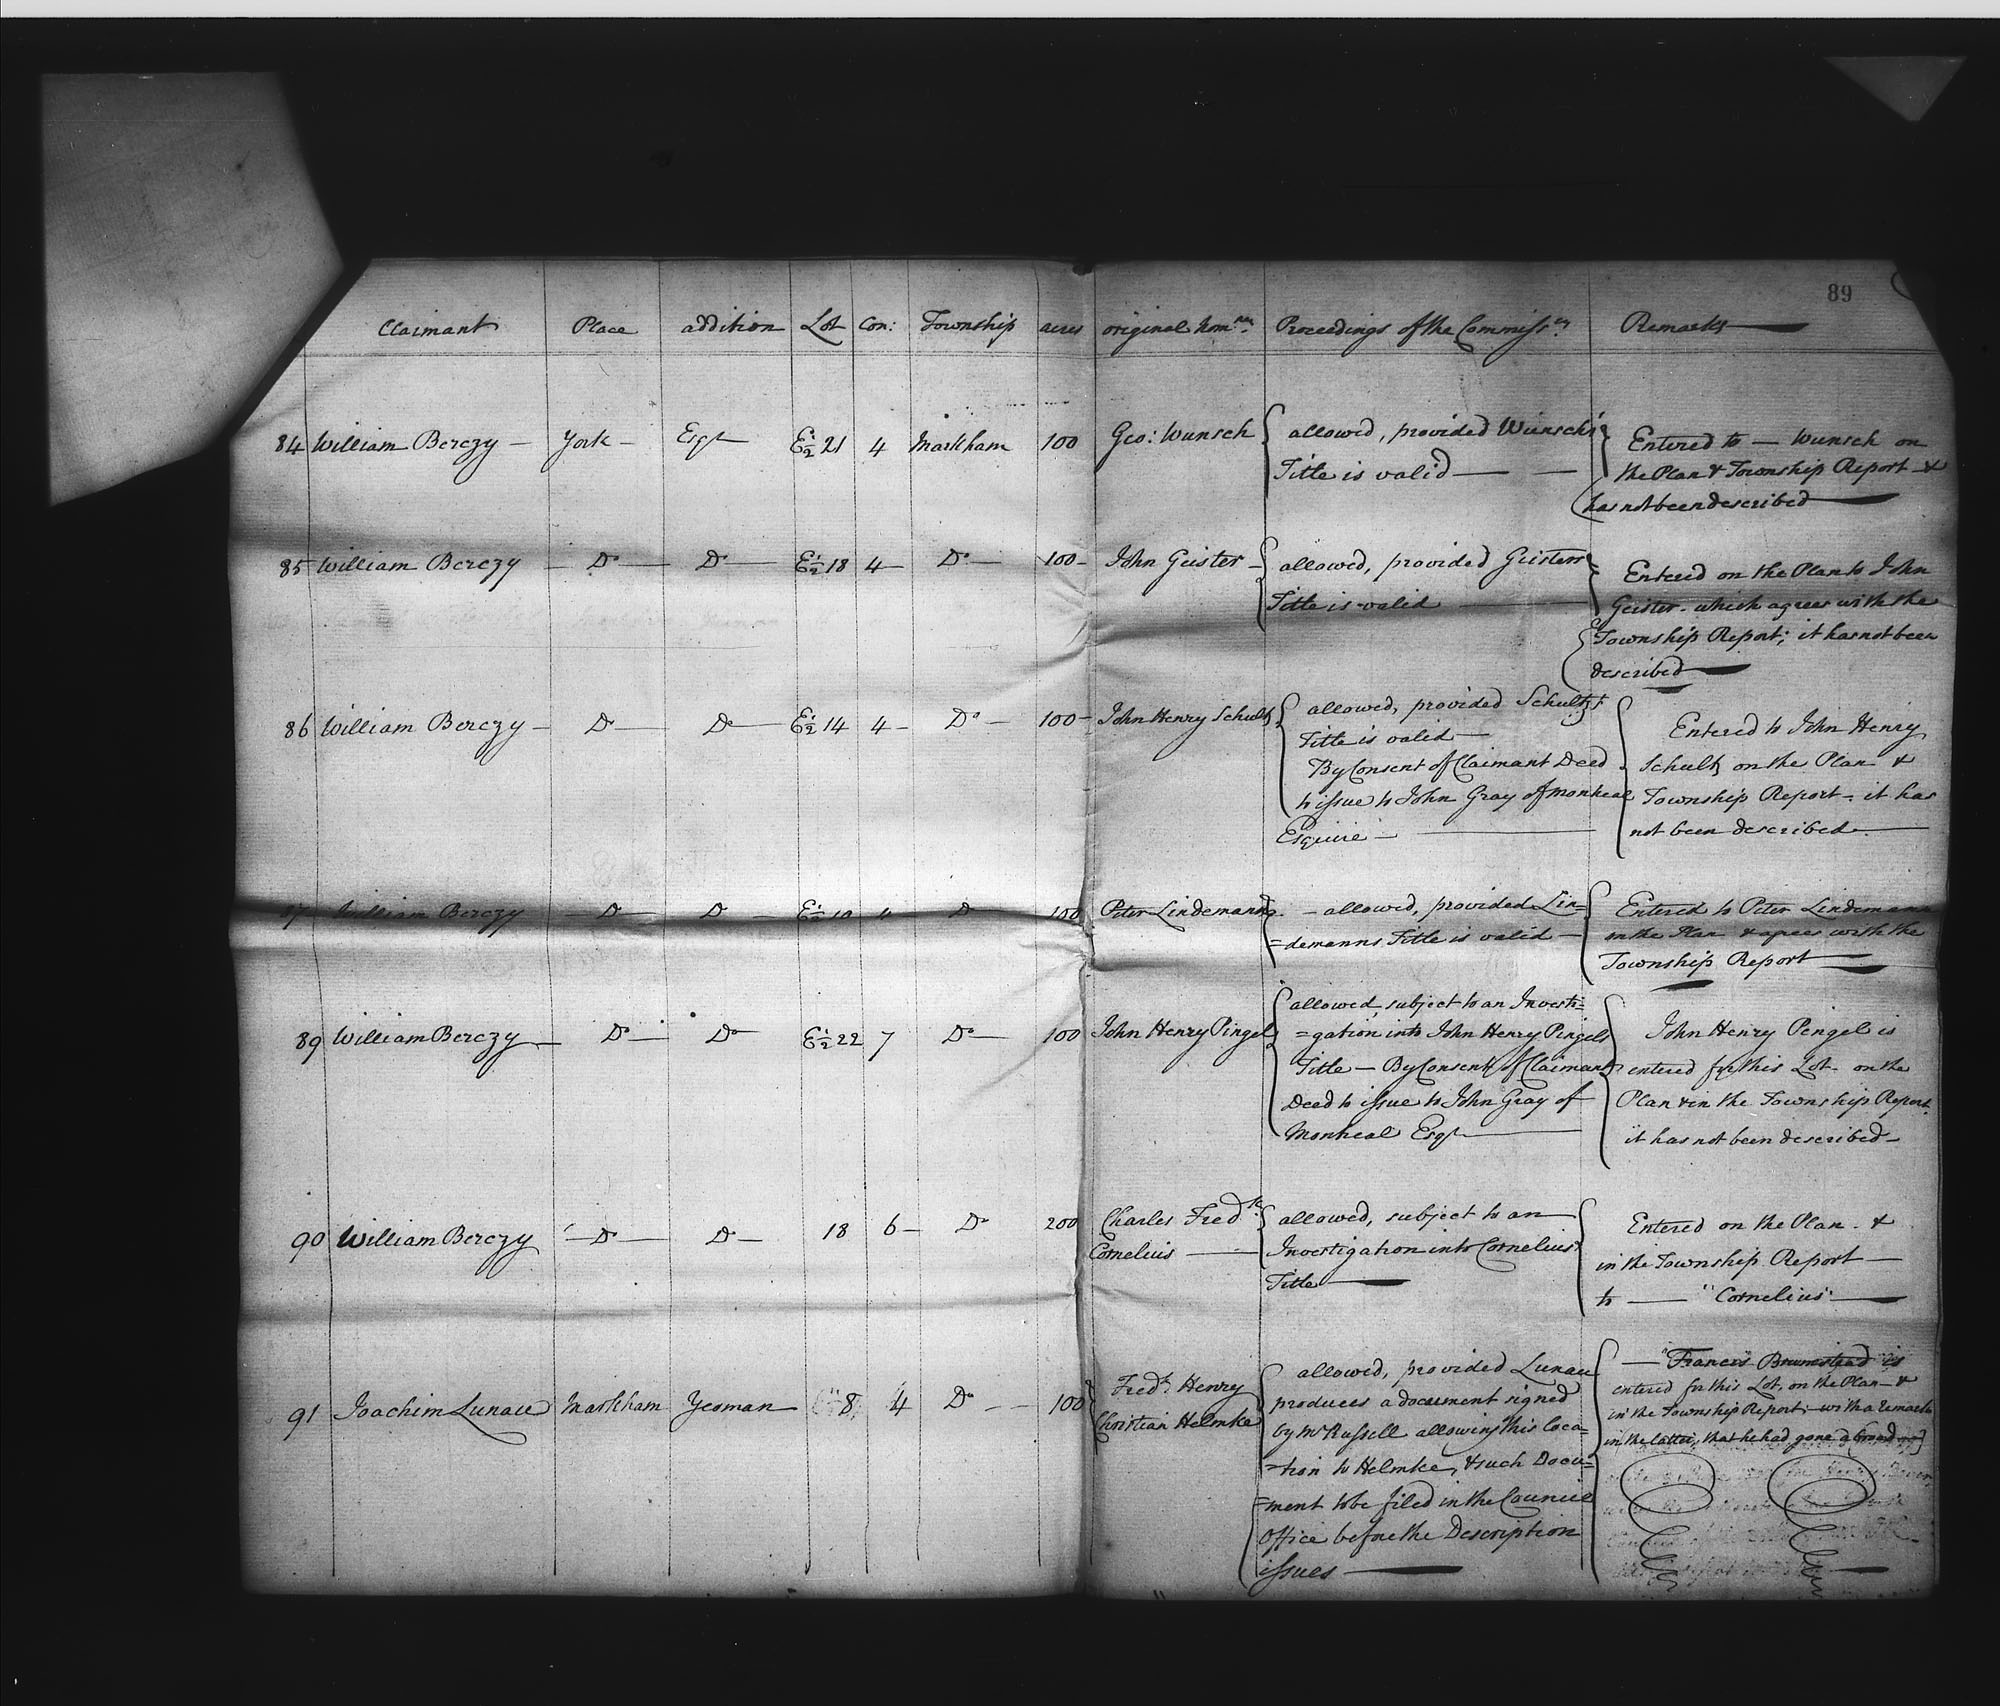 89
Claimant Place addition Lot Con: Township acres original Nom.nee Proceedings of the Commiss.rs Remarks
84 William Berczy — York — Esqr E½ 21 4 Markham 100 Geo: Wunsch
allowed, provided Wunsch's
Title is valid —
Entered to — Wunsch on
the Plan & Township Report &
has not been described —
85 William Berczy — Do — Do — E½ 18 4 — Do — 100 — John Geister —
allowed, provided Geisters
Title is valid —
Entered on the Plan to John
Geister. which agrees with the
Township Report; it has not been
described —
86 William Berczy — Do — Do — E½ 14 4 — Do — 100 — John Henry Schultz
allowed, provided Schultz's
Title is valid —
By Consent of Claimant Deed
to issue to John Gray of Montreal
Esquire —
Entered to John Henry
Schultz on the Plan &
Township Report — it has
not been described. —
87 William Berczy — Do — Do — E½ Do 100 Peter Lindemann
— allowed, provided Lin=
=demanns Title is valid —
Entered to Peter Lindemann
on the Plan & agrees with the
Township Report —
89 William Berczy — Do — Do E½ 22 7 Do — 100 John Henry Pingel
allowed, subject to an Investi=
=gation into John Henry Pingels
Title — By Consent of Claimant
Deed to issue to John Gray of
Montreal Esqr —
John Henry Pengel is
entered for this Lot on the
Plan & in the Township Report
it has not been described —
90 William Berczy — Do — Do — 18 6 — Do 200 Charles Fredk
Cornelius —
allowed, subject to an
Investigation into Cornelius's
Title —
Entered on the Plan &
in the Township Report —
to — "Cornelius" —
91 Joachim Lunau Markham Yeoman 8 4 Do — 100 Fredk Henry
Christian Helmke
allowed, provided Lunau
produces a document signed
by Mr Russell allowing this loca=
=tion to Helmke, & such Docu=
=ment to be filed in the Council
Office before the Description
issues —
— "Francis Brumstead" is
entered for this Lot, on the Plan — &
in the Township Report; — with a remark
in the latter, that he had gone abroad